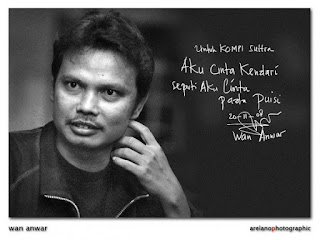 Untuk KOMPI Sultra
Aku Cinta Kendari
seputi Aku Cinta
pada Puisi
20-11-08
Wan Anwar
wan anwar
arelanophotographic